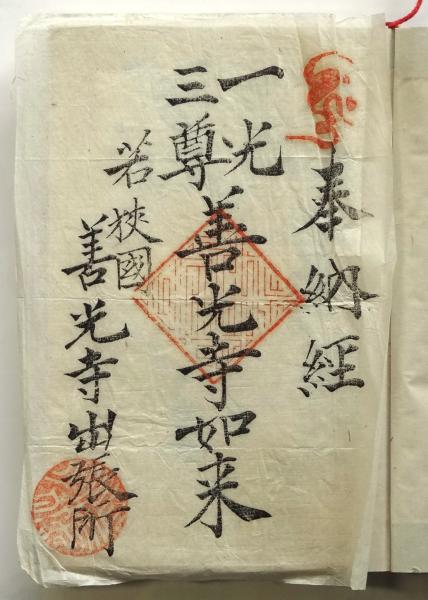 奉納経
一光
三尊
善光寺如来
若狹國
善光寺出張所